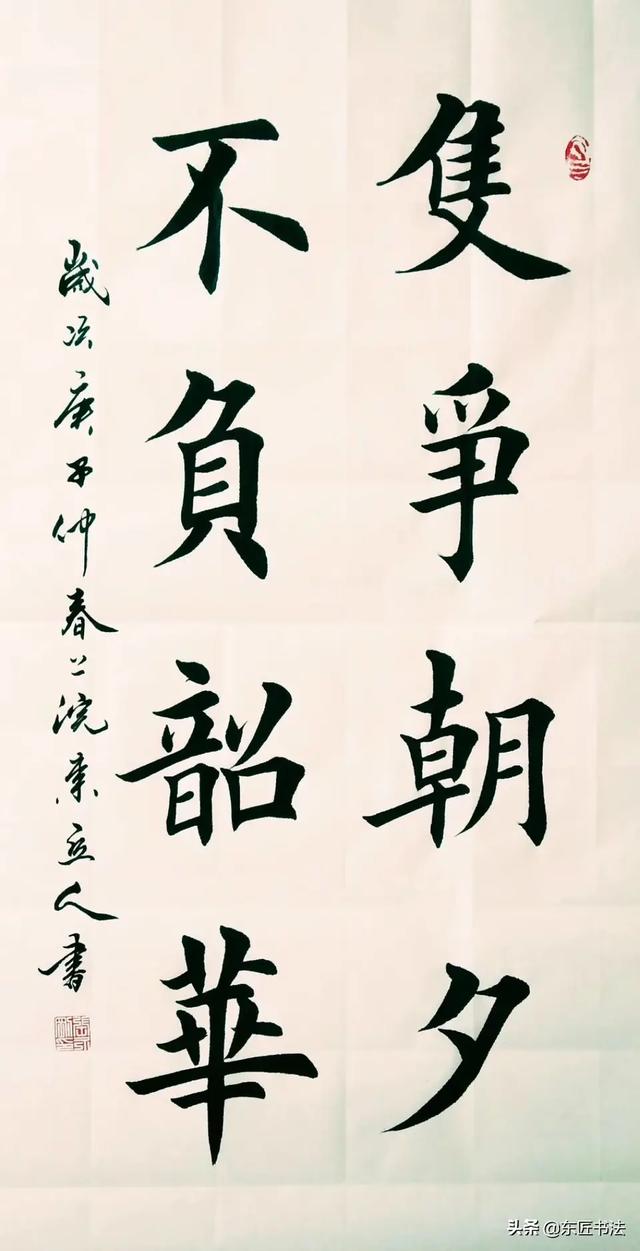 隻爭朝夕
不負韶華
歲次庚子仲春上浣東立人書
头条 @东匠书法